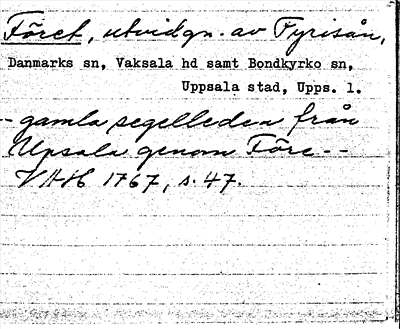 Föret, utvidgn. av Fyrisån,
Danmarks sn, Vaksala hd samt Bondkyrko sn,
Uppsala stad, Upps. l.
-- gamla segelleden från
Upsala genom Före --
VAH 1767, s. 47.